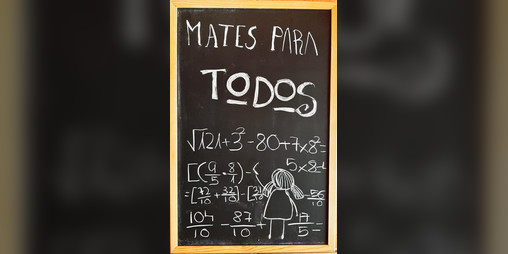 MATES PARA
TODOS
√121+3²-80+7x8²=
5x8
[(9/5·8/1)-{
=[72/10+32/10]-[
56/10
104/10-87/10+
17/5-